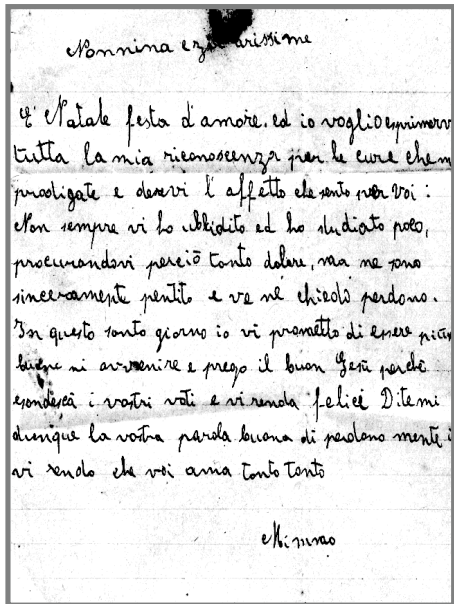 Nonnina e zie carissime
E' Natale festa d'amore. ed io voglio esprimerv
tutta la mia riconoscenza per le cure che m
prodigate e dirvi l'affetto che sento per Voi:
Non sempre vi ho ubbidito ed ho studiato poco,
procurandovi perciò tanto dolore, ma ne sono
sinceramente pentito e ve ne chiedo perdono.
In questo santo giorno io vi prometto di essere più
buono avvenire e prego il buon Gesù perchè
esaudisca i vostri voti e vi renda felici Ditemi
dunque la vostra parola buona di perdono mente
vi rendo che voi ama tanto tanto
Mimmo